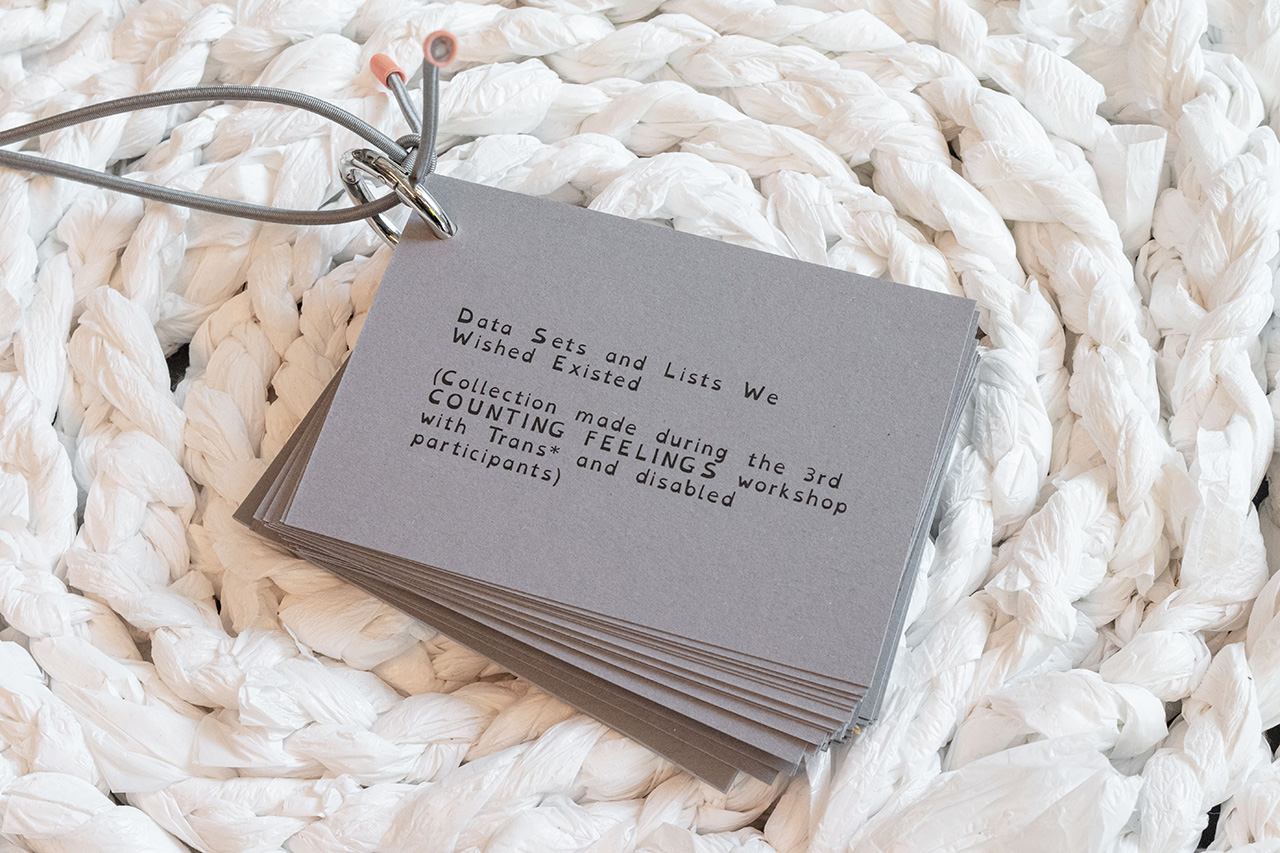 Data Sets and Lists We
Wished Existed
(Collection made during the 3rd
COUNTING FEELINGS workshop
with Trans* and disabled
participants)